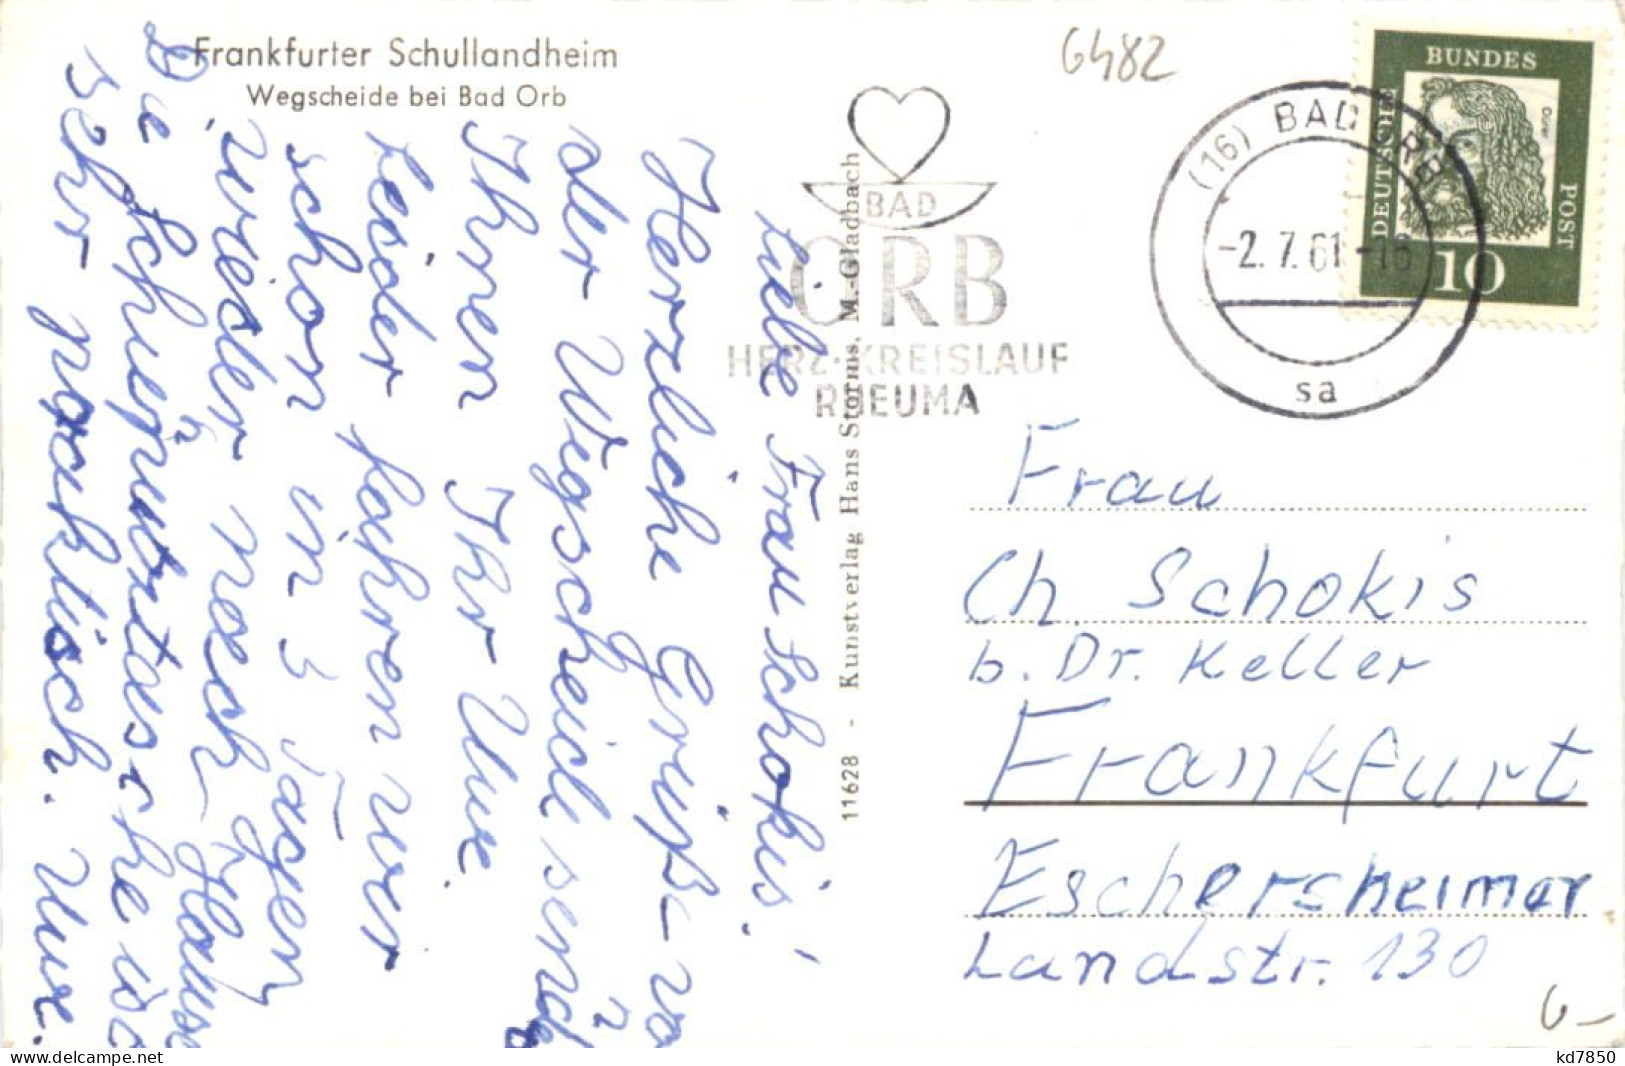 Frankfurter Schullandheim
Wegscheide bei Bad Orb
6482
BAD
ORB
HERZ·KREISLAUF
RHEUMA
(16) BAD ORB
-2.7.61-16
sa
BUNDES
DEUTSCHE
POST
Dürer
10
11628 - Kunstverlag Hans Storms, M.-Gladbach
Liebe Frau Schokis!
Herzliche Grüße vo
der Wegscheide sende
Ihnen Ihr Uwe.
Leider fahren wir
schon in 3 Tagen
wieder nach Hause
Die Schuhputztasche is
sehr praktisch. Uwe.
Frau
Ch. Schokis
b. Dr. Keller
Frankfurt
Eschersheimer
Landstr. 130
kd7850
delcampe.net